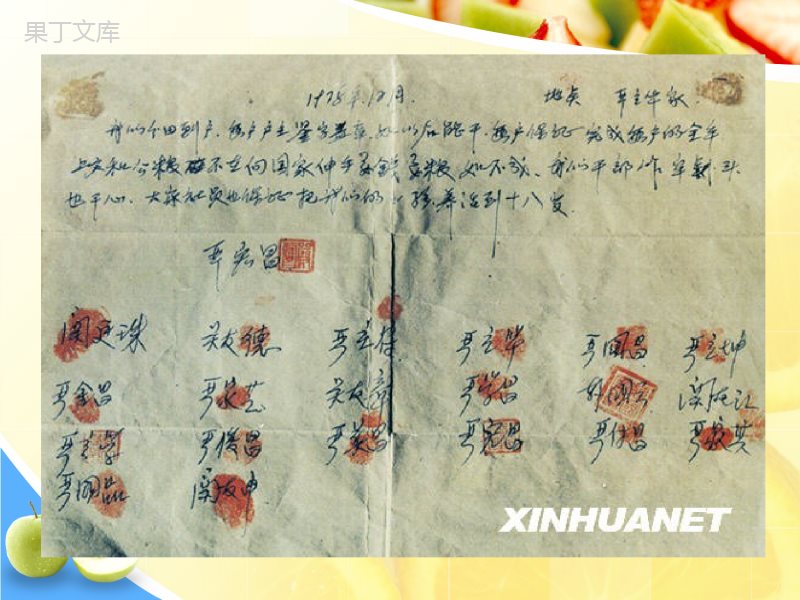 果丁文库
1978年12月. 地点 严立华家
我们分田到户，每户户主签字盖章，如以后能干，每户保证完成每户的全年
上交和公粮，不在向国家伸手要钱要粮，如不成，我们干部作牢刹头
也干心，大家社员也保证把我们的小孩养活到十八岁。
严宏昌
关廷珠 关友德 严立符 严立华 严国昌 严立坤
严金昌 严家芝 关友章 严学昌 韩国云 关友江
严立学 严俊昌 严美昌 严宏昌 严付昌 严家其
严国品 关友申
XINHUANET